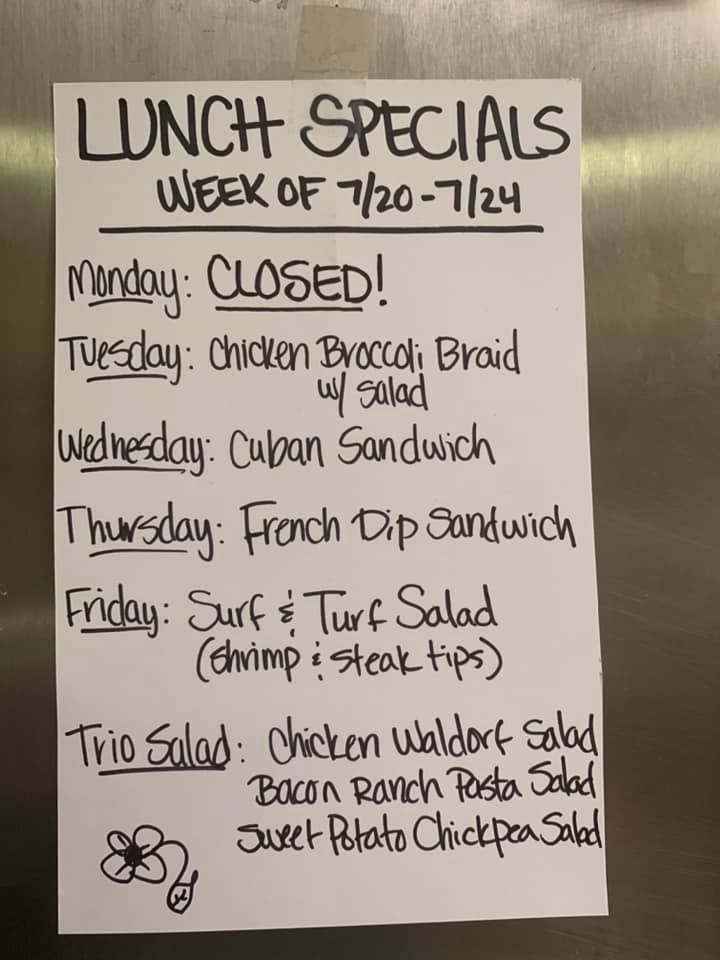 LUNCH SPECIALS
WEEK OF 7/20-7/24
Monday: CLOSED!
Tuesday: Chicken Broccoli Braid
w/ salad
Wednesday: Cuban Sandwich
Thursday: French Dip Sandwich
Friday: Surf & Turf Salad
(shrimp & steak tips)
Trio Salad: Chicken Waldorf Salad
Bacon Ranch Pasta Salad
Sweet Potato Chickpea Salad